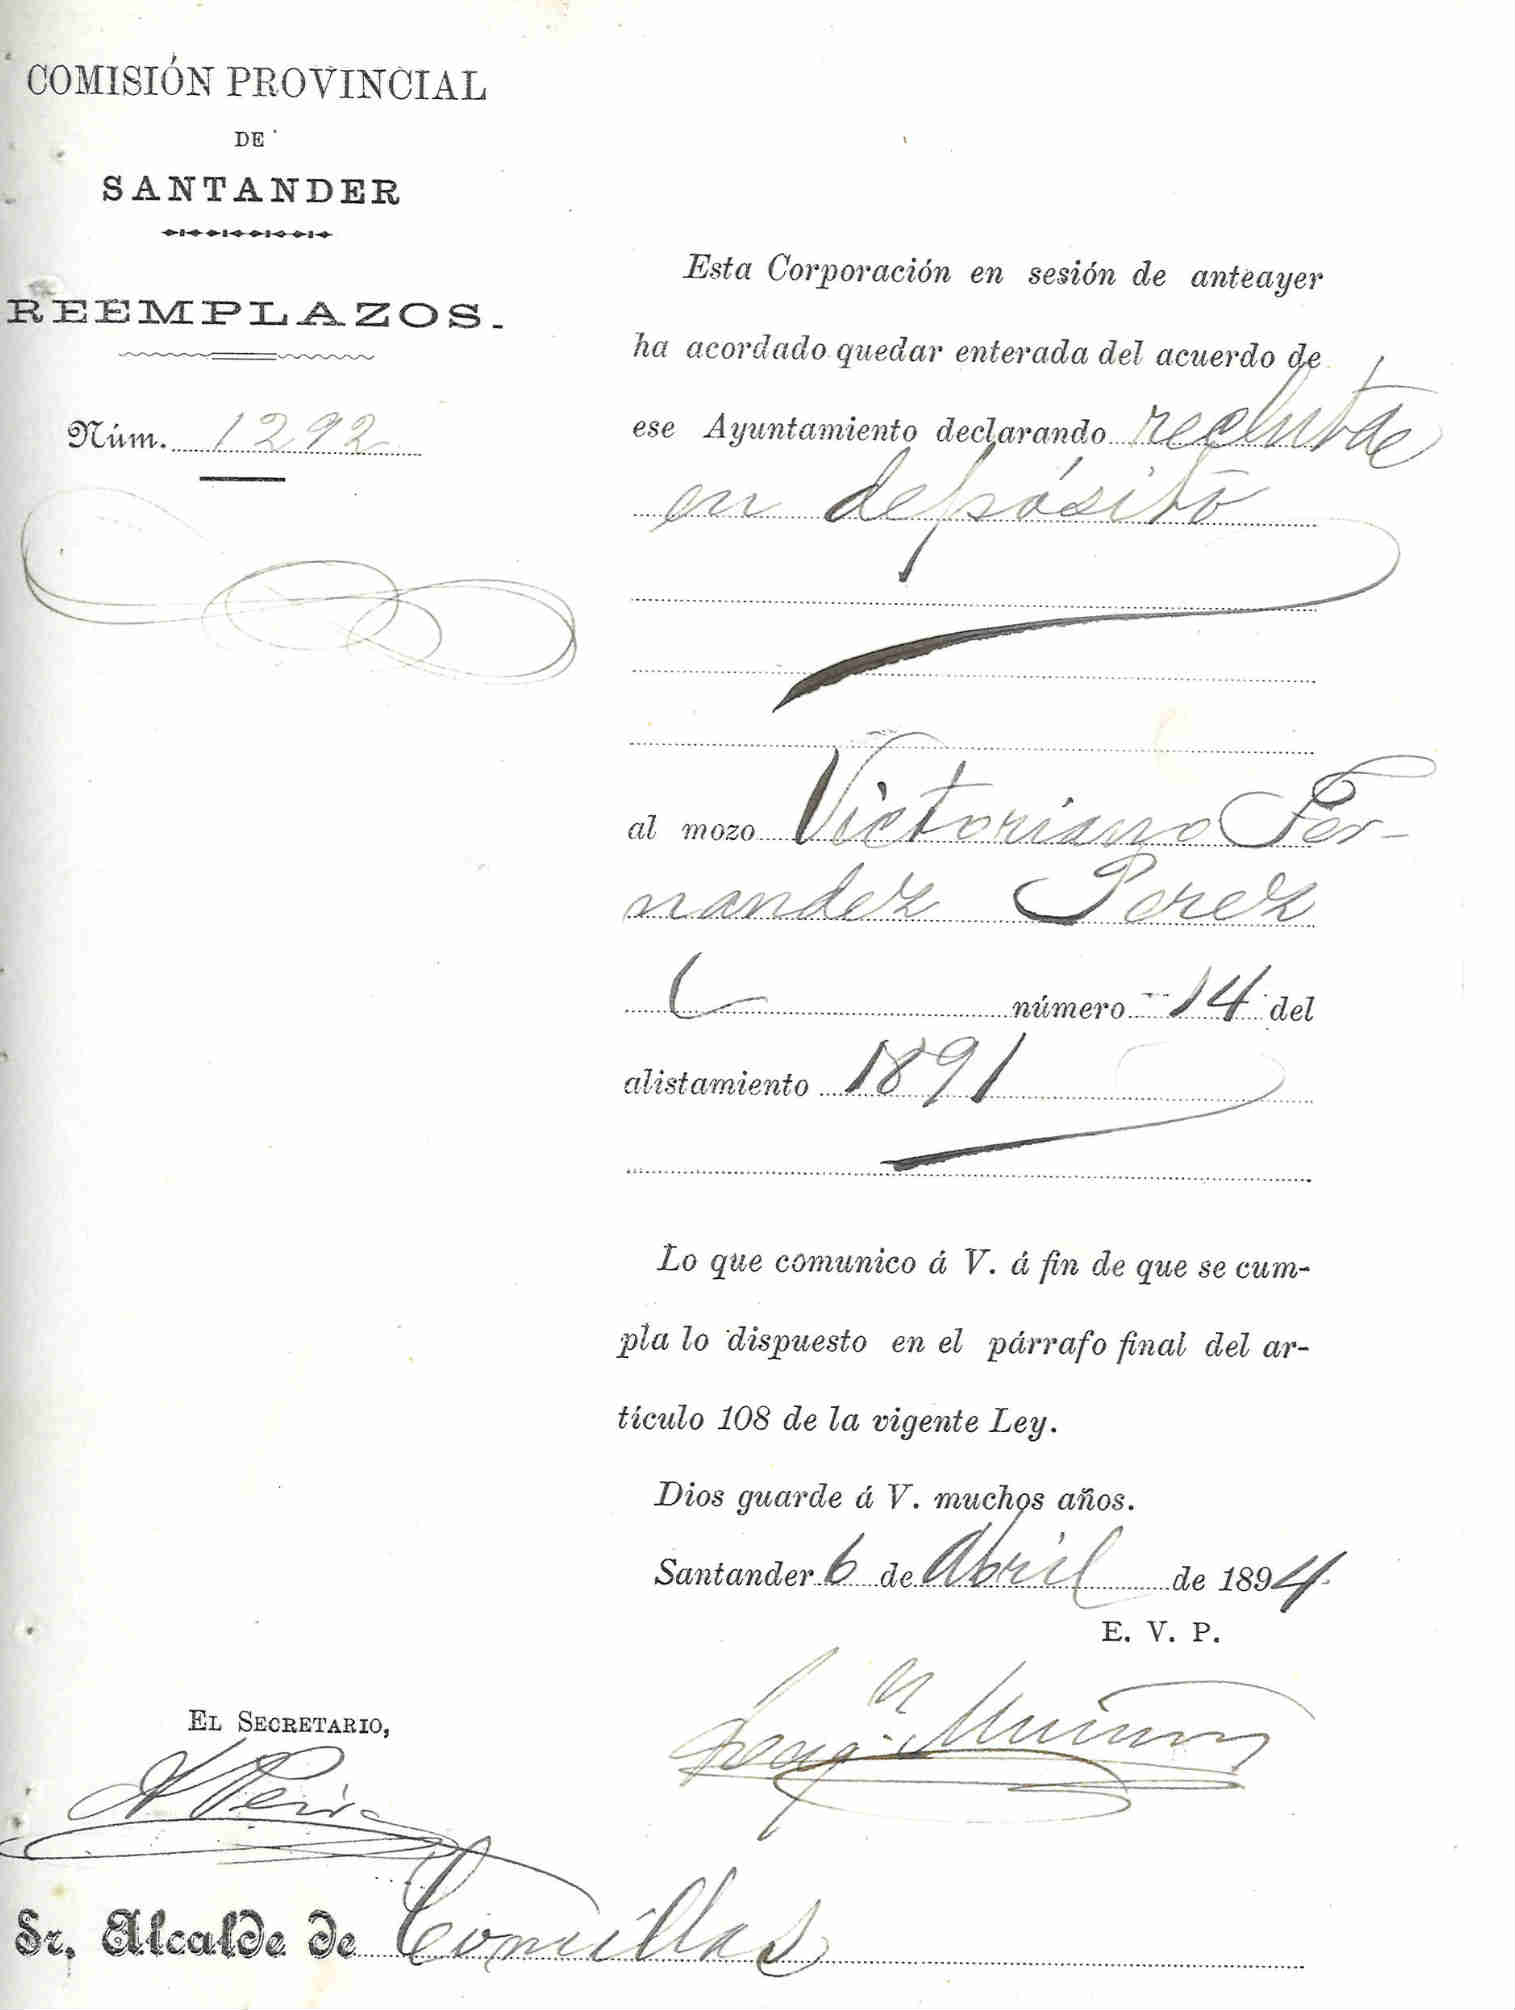 COMISIÓN PROVINCIAL
DE
SANTANDER
REEMPLAZOS.
Núm. 1292
Esta Corporación en sesión de anteayer
ha acordado quedar enterada del acuerdo de
ese Ayuntamiento declarando recluta
en depósito
al mozo Victoriano Fer-
nandez Perez
número 14 del
alistamiento 1891
Lo que comunico á V. á fin de que se cum-
pla lo dispuesto en el párrafo final del ar-
tículo 108 de la vigente Ley.
Dios guarde á V. muchos años.
Santander 6 de Abril de 1894
E. V. P.
EL SECRETARIO,
Sr. Alcalde de Comillas